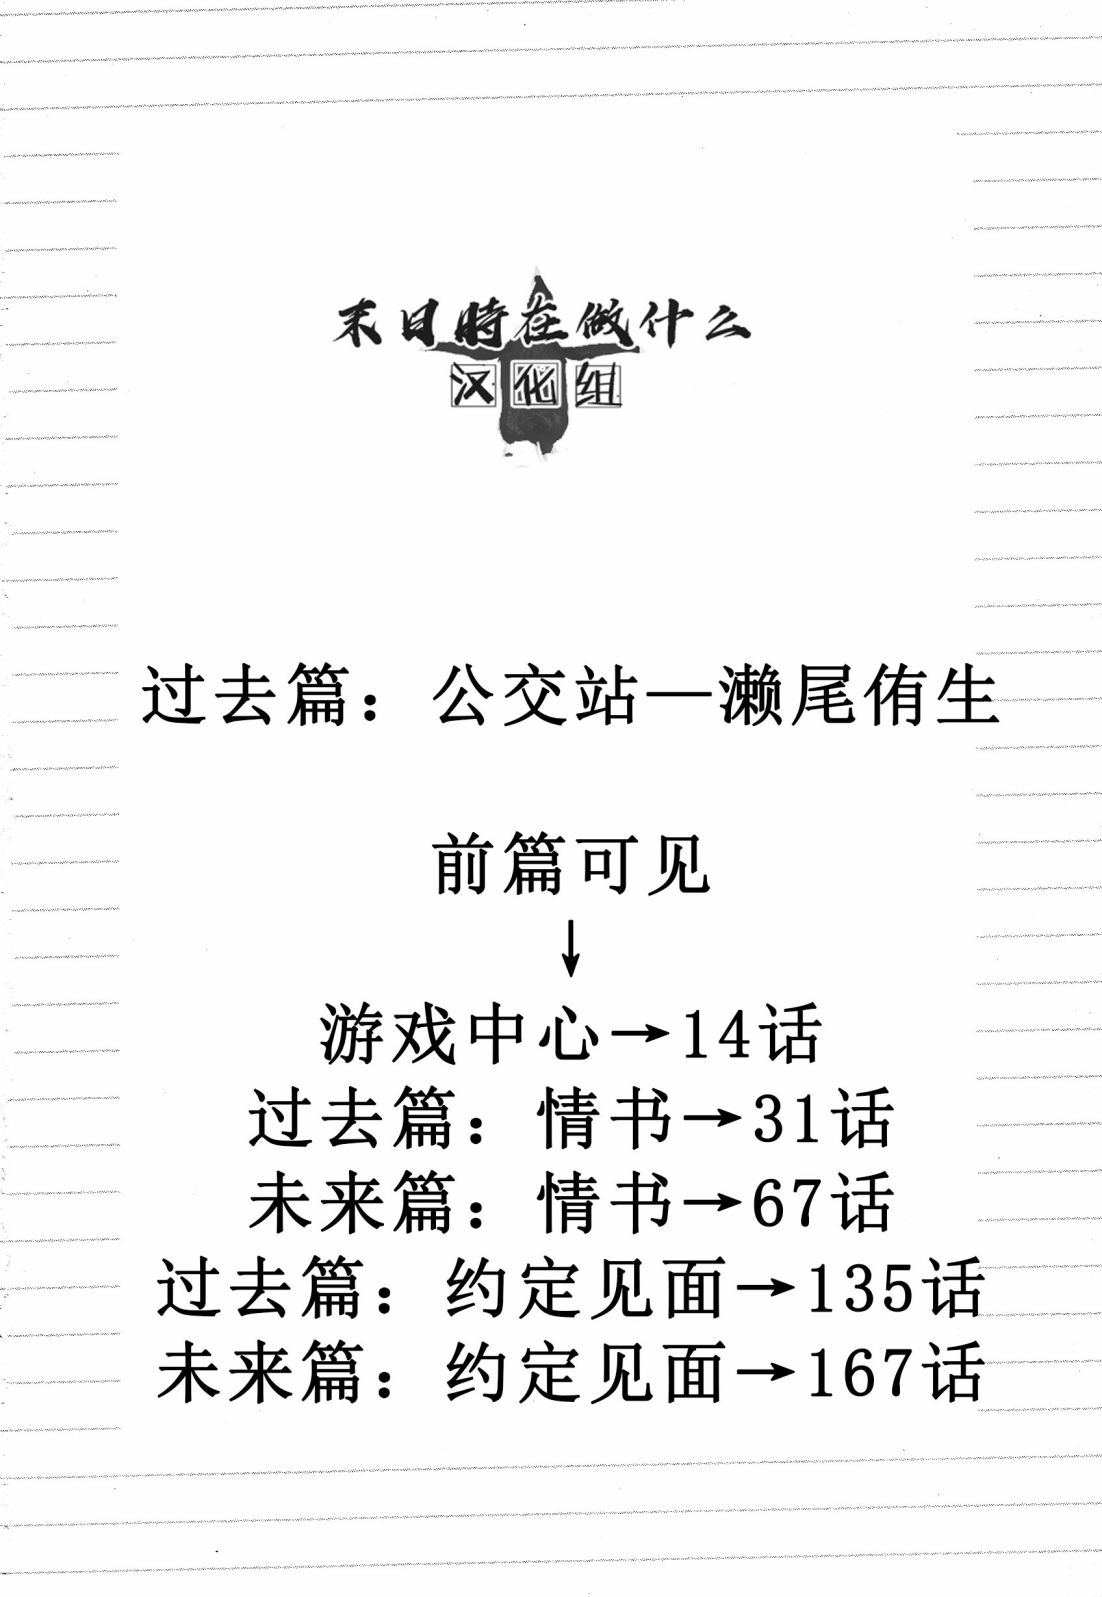 末日時在做什么
汉化组
过去篇：公交站—濑尾侑生
前篇可见
↓
游戏中心→14话
过去篇：情书→31话
未来篇：情书→67话
过去篇：约定见面→135话
未来篇：约定见面→167话